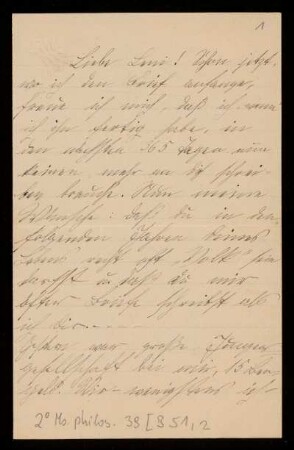 1
Liebe Leni! Schon jetzt,
wo ich den Brief anfange,
freue ich mich, daß ich, wenn
ich ihn fertig habe, in
den nächsten 365 Tagen nun
keinen mehr an dich schrei-
ben brauche. Nun meine
Wünsche: daß du in den
folgenden Jahren deines
Lebens recht oft "Voll" sein
darfst u. daß du mir
öfter Briefe schreibst als
ich dir. - - -
war große Jungen
gesellschaft bei mir, 15
Wir - wenigstens ich -
2° Ms. philos. 39 [B 51, 2